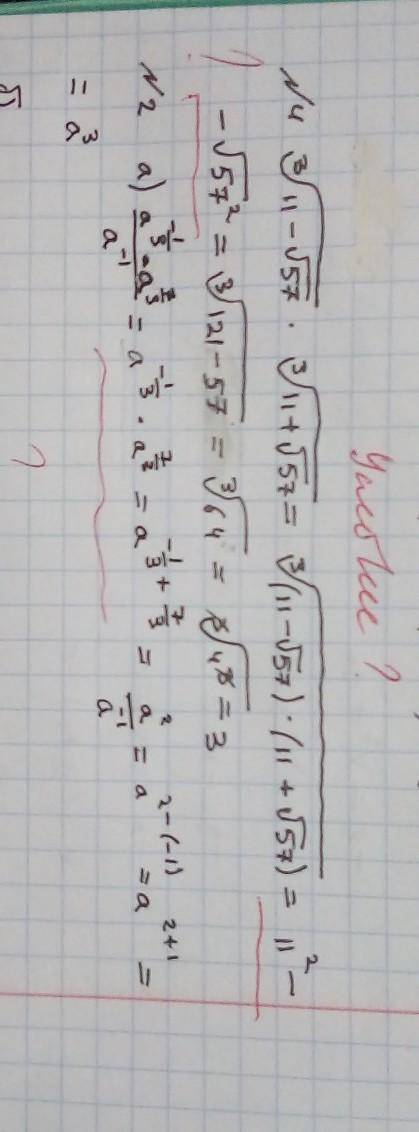 Условие ?
№4 ∛(11-√57) · ∛(11+√57) = ∛((11-√57)·(11+√57)) = 11² -
? -√57² = ∛(121-57) = ∛64 = ∛(4³) = 3
№2 а) (a^(-1/3) · a^(7/3))/a^(-1) = a^(-1/3) · a^(7/3) = a^(-1/3 + 7/3) = a²/a^(-1) = a^(2-(-1)) = a^(2+1) =
= a³
?